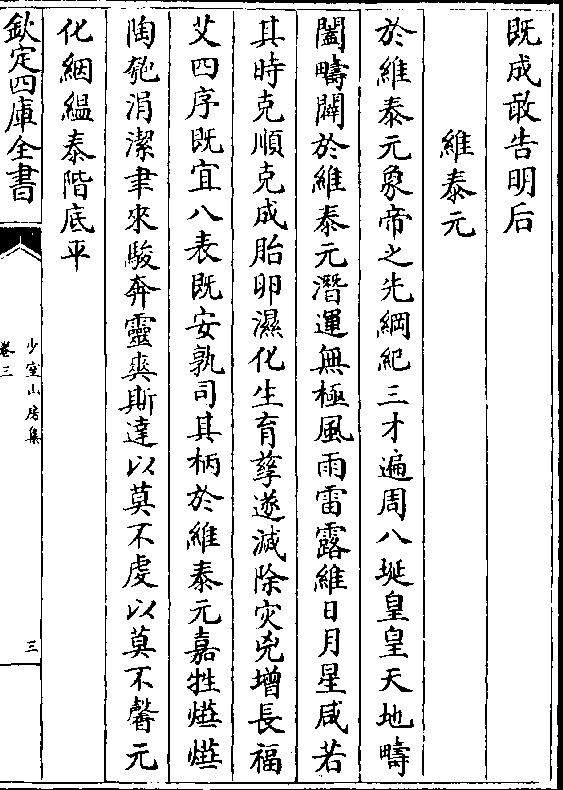 既成敢告明后
維泰元
於維泰元象帝之先綱紀三才遍周八埏皇皇天地疇
闔疇闢於維泰元潛運無極風雨雷露維日月星咸若
其時克順克成胎卵濕化生育孳遂滅除灾兇增長福
艾四序既宜八表既安孰司其柄於維泰元嘉牲㷼㷼
陶匏涓潔聿來駿奔靈爽斯達以莫不虔以莫不馨元
化絪緼泰階底平
欽定四庫全書
少室山房集
卷三
三